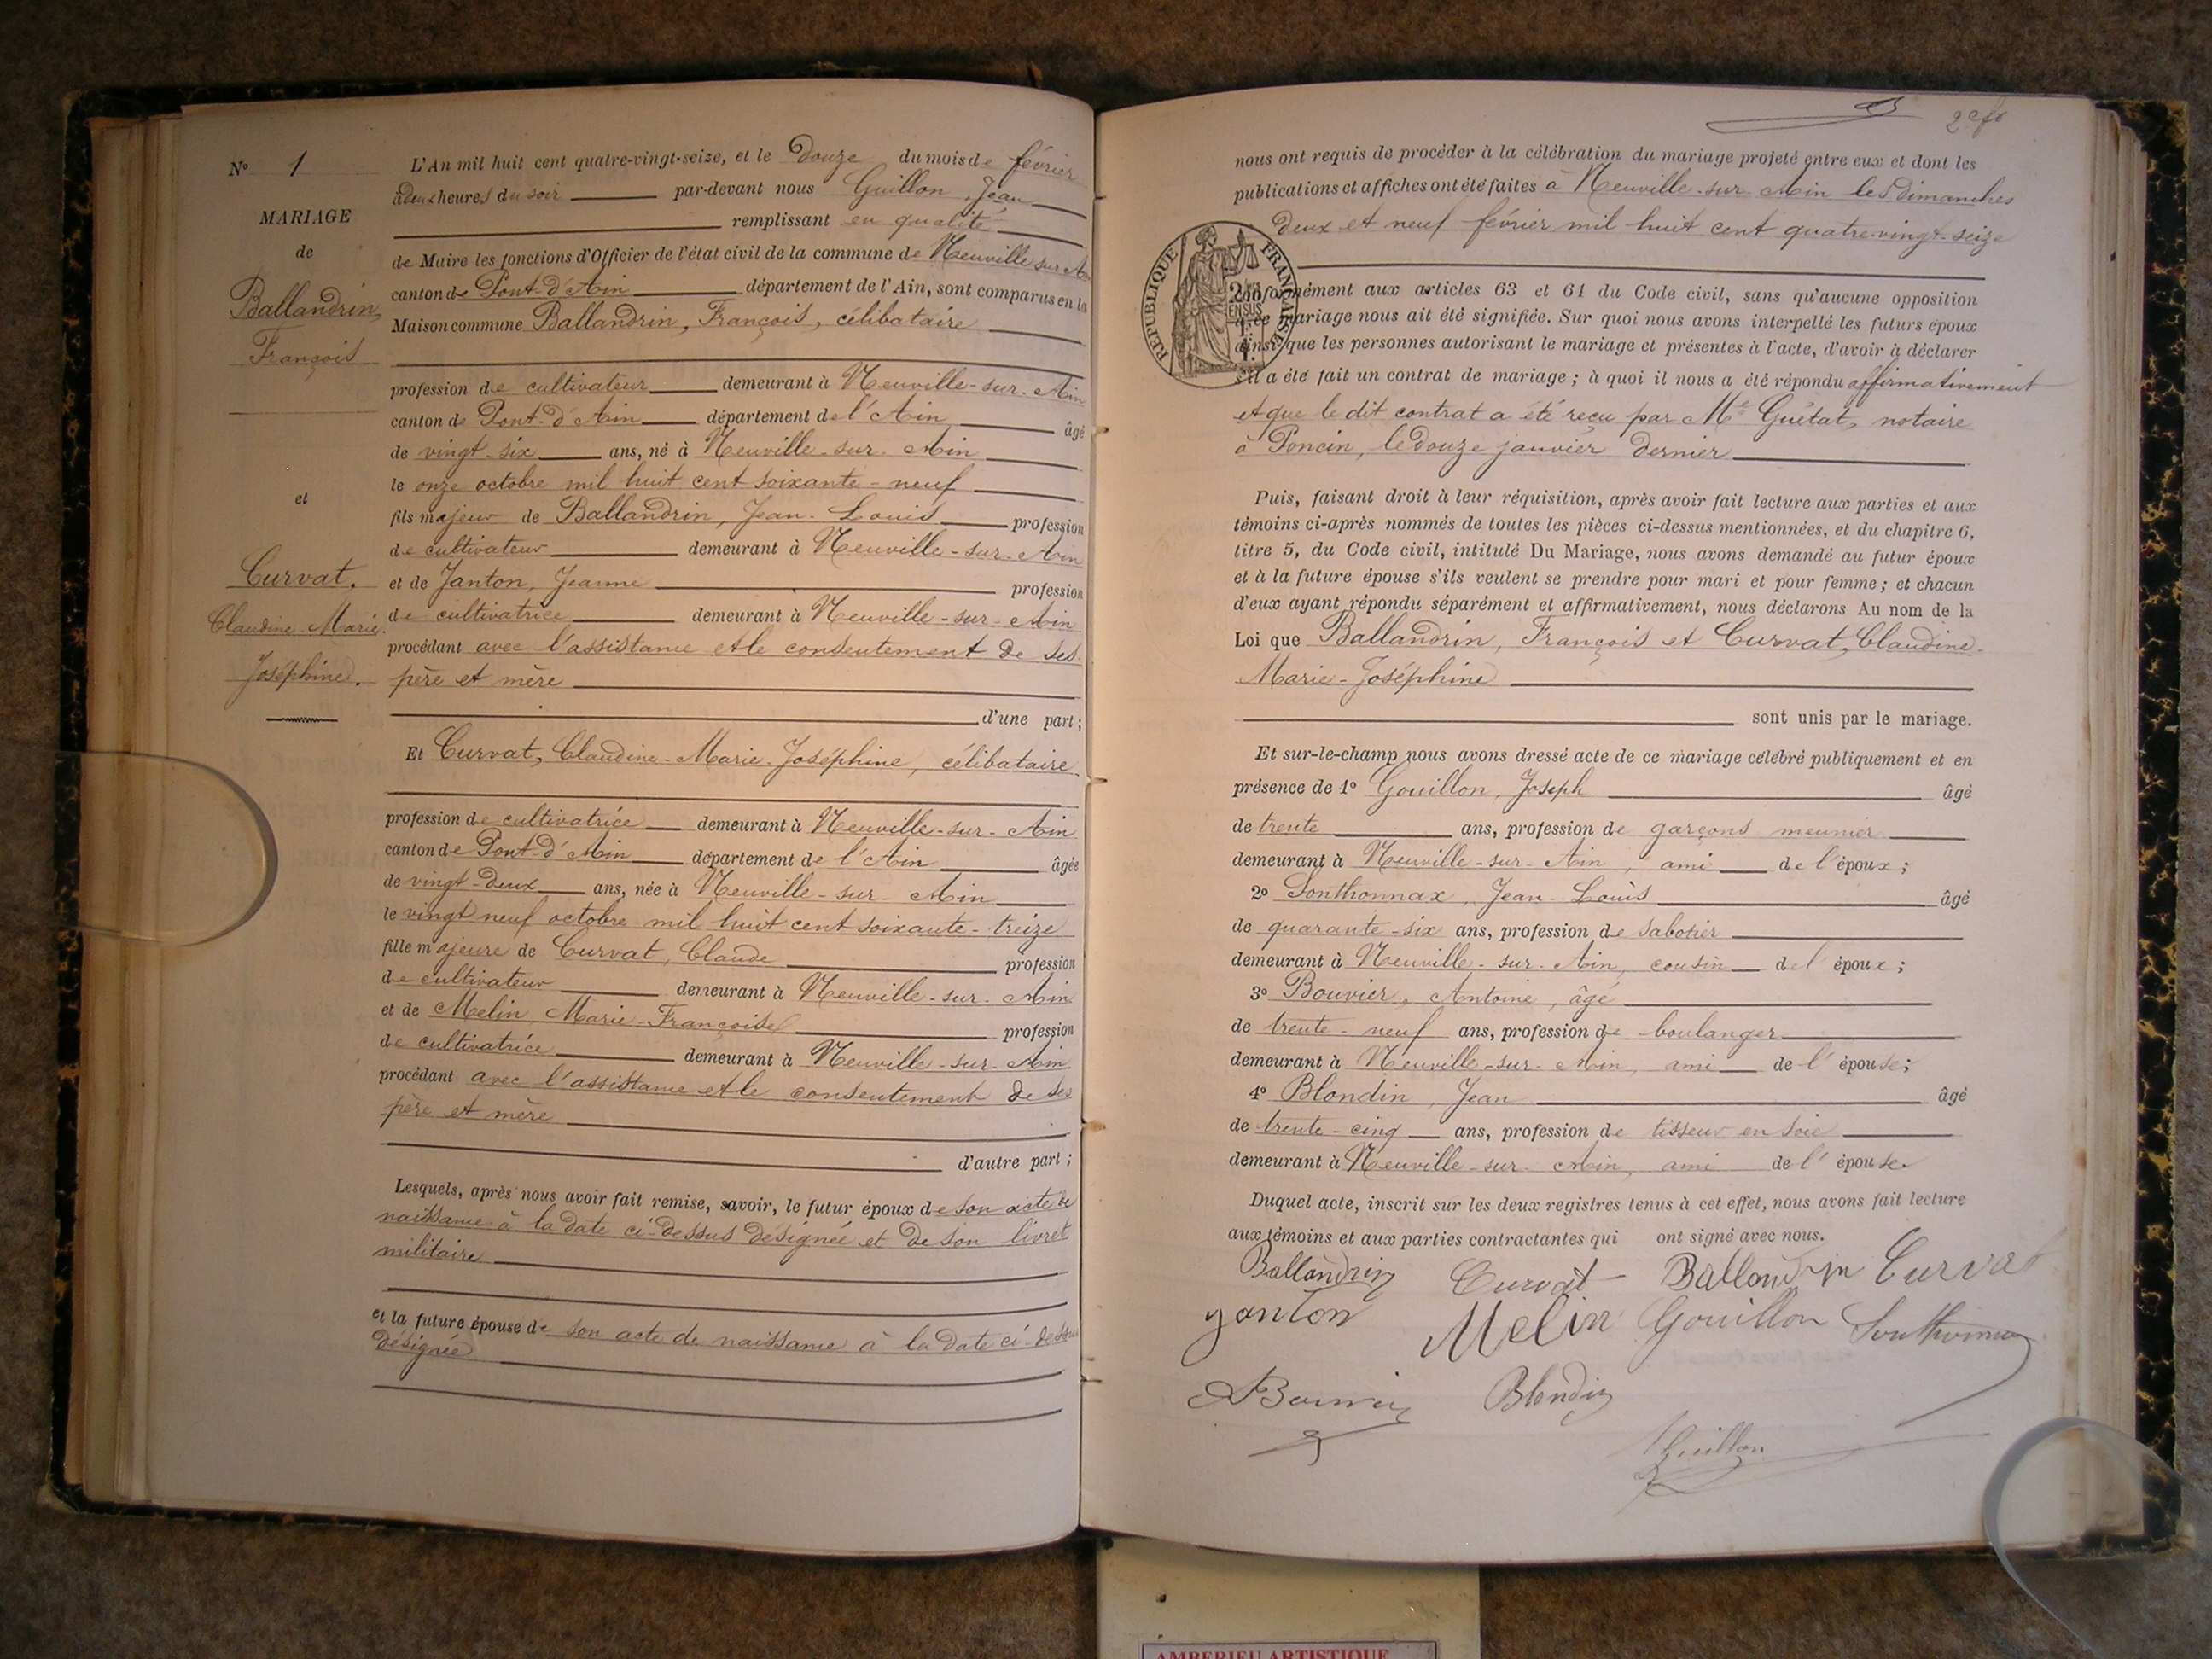 N° 1
MARIAGE
de
Ballandrin,
François
et
Curvat,
Claudine-Marie-
Joséphine.
L'An mil huit cent quatre-vingt-seize, et le Douze du mois de février
à deux heures du soir par-devant nous Guillon, Jean
remplissant en qualité
de Maire les fonctions d'Officier de l'état civil de la commune de Neuville sur Ain
canton de Pont-d'Ain département de l'Ain, sont comparus en la
Maison commune Ballandrin, François, célibataire
profession de cultivateur demeurant à Neuville-sur-Ain
canton de Pont-d'Ain département de l'Ain âgé
de vingt-six ans, né à Neuville-sur-Ain
le onze octobre mil huit cent soixante-neuf
fils majeur de Ballandrin, Jean-Louis profession
de cultivateur demeurant à Neuville-sur-Ain
et de Janton, Jeanne profession
de cultivatrice demeurant à Neuville-sur-Ain
procédant avec l'assistance et le consentement de ses
père et mère
d'une part;
Et Curvat, Claudine-Marie-Joséphine, célibataire
profession de cultivatrice demeurant à Neuville-sur-Ain
canton de Pont-d'Ain département de l'Ain âgée
de vingt-deux ans, née à Neuville-sur-Ain
le vingt neuf octobre mil huit cent soixante-treize
fille majeure de Curvat, Claude profession
de cultivateur demeurant à Neuville-sur-Ain
et de Melin Marie-Françoise profession
de cultivatrice demeurant à Neuville-sur-Ain
procédant avec l'assistance et le consentement de ses
père et mère
d'autre part;
Lesquels, après nous avoir fait remise, savoir, le futur époux de son acte de
naissance à la date ci-dessus désignée et de son livret
militaire
et la future épouse de son acte de naissance à la date ci-dessus
désignée
nous ont requis de procéder à la célébration du mariage projeté entre eux et dont les
publications et affiches ont été faites à Neuville-sur-Ain les dimanches
deux et neuf février mil huit cent quatre-vingt-seize
RÉPUBLIQUE FRANÇAISE
conformément aux articles 63 et 64 du Code civil, sans qu'aucune opposition
à ce mariage nous ait été signifiée. Sur quoi nous avons interpellé les futurs époux
ainsi que les personnes autorisant le mariage et présentes à l'acte, d'avoir à déclarer
s'il a été fait un contrat de mariage; à quoi il nous a été répondu affirmativement
et que le dit contrat a été reçu par Me Guétat, notaire
à Poncin, le douze janvier dernier
Puis, faisant droit à leur réquisition, après avoir fait lecture aux parties et aux
témoins ci-après nommés de toutes les pièces ci-dessus mentionnées, et du chapitre 6,
titre 5, du Code civil, intitulé Du Mariage, nous avons demandé au futur époux
et à la future épouse s'ils veulent se prendre pour mari et pour femme; et chacun
d'eux ayant répondu séparément et affirmativement, nous déclarons Au nom de la
Loi que Ballandrin, François et Curvat, Claudine-
Marie-Joséphine
sont unis par le mariage.
Et sur-le-champ nous avons dressé acte de ce mariage célébré publiquement et en
présence de 1° Gouillon, Joseph âgé
de trente ans, profession de garçons meunier
demeurant à Neuville-sur-Ain, ami de l'époux;
2° Sonthonnax, Jean-Louis âgé
de quarante-six ans, profession de sabotier
demeurant à Neuville-sur-Ain, cousin de l'époux;
3° Bouvier, Antoine, âgé
de trente-neuf ans, profession de boulanger
demeurant à Neuville-sur-Ain, ami de l'épouse;
4° Blondin, Jean âgé
de trente-cinq ans, profession de tisseur en soie
demeurant à Neuville-sur-Ain, ami de l'épouse.
Duquel acte, inscrit sur les deux registres tenus à cet effet, nous avons fait lecture
aux témoins et aux parties contractantes qui ont signé avec nous.
Ballandrin Curvat Ballandrin Curvat
Janton Melin Gouillon Sonthonnax
Bouvier Blondin
Guillon
AMBERIEU ARTISTIQUE